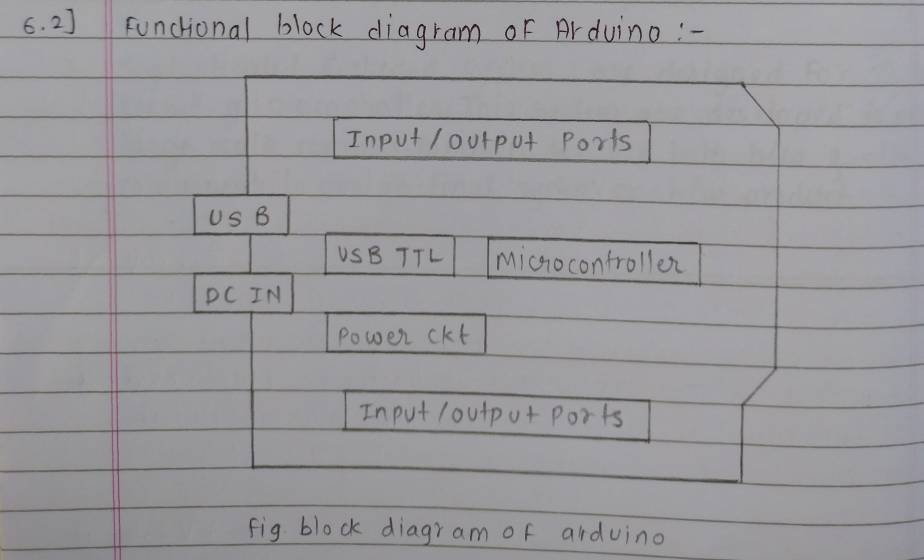 6.2] Functional block diagram of Arduino :-
Input/output Ports
USB
USB TTL Microcontroller
DC IN
Power ckt
Input/output Ports
Fig. block diagram of arduino